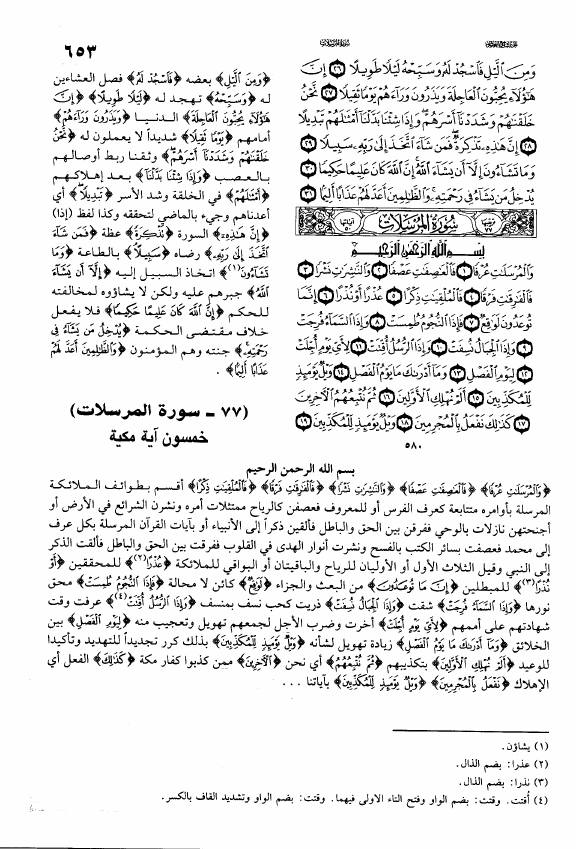 ٦٥٣
سورة المرسلات
وَمِنَ ٱلَّيْلِ فَٱسْجُدْ لَهُۥ وَسَبِّحْهُ لَيْلًا طَوِيلًا ٢٦ إِنَّ
هَٰٓؤُلَآءِ يُحِبُّونَ ٱلْعَاجِلَةَ وَيَذَرُونَ وَرَآءَهُمْ يَوْمًا ثَقِيلًا ٢٧ نَّحْنُ
خَلَقْنَٰهُمْ وَشَدَدْنَآ أَسْرَهُمْ وَإِذَا شِئْنَا بَدَّلْنَآ أَمْثَٰلَهُمْ تَبْدِيلًا
٢٨ إِنَّ هَٰذِهِۦ تَذْكِرَةٌ فَمَن شَآءَ ٱتَّخَذَ إِلَىٰ رَبِّهِۦ سَبِيلًا ٢٩
وَمَا تَشَآءُونَ إِلَّآ أَن يَشَآءَ ٱللَّهُ إِنَّ ٱللَّهَ كَانَ عَلِيمًا حَكِيمًا ٣٠
يُدْخِلُ مَن يَشَآءُ فِى رَحْمَتِهِۦ وَٱلظَّٰلِمِينَ أَعَدَّ لَهُمْ عَذَابًا أَلِيمًا ٣١
سُورَةُ الْمُرْسَلَاتِ
بِسْمِ ٱللَّهِ ٱلرَّحْمَٰنِ ٱلرَّحِيمِ
وَٱلْمُرْسَلَٰتِ عُرْفًا ١ فَٱلْعَٰصِفَٰتِ عَصْفًا ٢ وَٱلنَّٰشِرَٰتِ نَشْرًا ٣
فَٱلْفَٰرِقَٰتِ فَرْقًا ٤ فَٱلْمُلْقِيَٰتِ ذِكْرًا ٥ عُذْرًا أَوْ نُذْرًا ٦ إِنَّمَا
تُوعَدُونَ لَوَٰقِعٌ ٧ فَإِذَا ٱلنُّجُومُ طُمِسَتْ ٨ وَإِذَا ٱلسَّمَآءُ فُرِجَتْ
٩ وَإِذَا ٱلْجِبَالُ نُسِفَتْ ١٠ وَإِذَا ٱلرُّسُلُ أُقِّتَتْ ١١ لِأَىِّ يَوْمٍ أُجِّلَتْ
١٢ لِيَوْمِ ٱلْفَصْلِ ١٣ وَمَآ أَدْرَىٰكَ مَا يَوْمُ ٱلْفَصْلِ ١٤ وَيْلٌ يَوْمَئِذٍ
لِّلْمُكَذِّبِينَ ١٥ أَلَمْ نُهْلِكِ ٱلْأَوَّلِينَ ١٦ ثُمَّ نُتْبِعُهُمُ ٱلْءَاخِرِينَ
١٧ كَذَٰلِكَ نَفْعَلُ بِٱلْمُجْرِمِينَ ١٨ وَيْلٌ يَوْمَئِذٍ لِّلْمُكَذِّبِينَ ١٩
٥٨٠
﴿وَمِنَ ٱلَّيْلِ﴾ بعضه ﴿فَٱسْجُدْ لَهُ﴾ فصل العشاءين
له ﴿وَسَبِّحْهُ﴾ تهجد له ﴿لَيْلًا طَوِيلًا﴾ ﴿إِنَّ
هَٰٓؤُلَآءِ يُحِبُّونَ ٱلْعَاجِلَةَ﴾ الدنيا ﴿وَيَذَرُونَ وَرَآءَهُمْ﴾
أمامهم ﴿يَوْمًا ثَقِيلًا﴾ شديداً لا يعملون له ﴿نَّحْنُ
خَلَقْنَٰهُمْ وَشَدَدْنَآ أَسْرَهُمْ﴾ وثقنا ربط أوصالهم
بالعصب ﴿وَإِذَا شِئْنَا بَدَّلْنَآ﴾ بعد إهلاكهم
﴿أَمْثَٰلَهُمْ﴾ في الخلقة وشد الأسر ﴿تَبْدِيلًا﴾ أي
أعدناهم وجيء بالماضي لتحققه وكذا لفظ (إذا)
﴿إِنَّ هَٰذِهِ﴾ السورة ﴿تَذْكِرَةٌ﴾ عظة ﴿فَمَن شَآءَ
ٱتَّخَذَ إِلَىٰ رَبِّهِ﴾ رضاه ﴿سَبِيلًا﴾ بالطاعة ﴿وَمَا
تَشَآءُونَ﴾(١) اتخاذ السبيل إليه ﴿إِلَّآ أَن يَشَآءَ
ٱللَّهُ﴾ جبرهم عليه ولكن لا يشاؤوه لمخالفته
للحكم ﴿إِنَّ ٱللَّهَ كَانَ عَلِيمًا حَكِيمًا﴾ فلا يفعل
خلاف مقتضى الحكمة ﴿يُدْخِلُ مَن يَشَآءُ فِى
رَحْمَتِهِ﴾ جنته وهم المؤمنون ﴿وَٱلظَّٰلِمِينَ أَعَدَّ لَهُمْ
عَذَابًا أَلِيمًا﴾ .
(٧٧ ـ سورة المرسلات)
خمسون آية مكية
بسم الله الرحمن الرحيم
﴿وَٱلْمُرْسَلَٰتِ عُرْفًا﴾ ﴿فَٱلْعَٰصِفَٰتِ عَصْفًا﴾ ﴿وَٱلنَّٰشِرَٰتِ نَشْرًا﴾ ﴿فَٱلْفَٰرِقَٰتِ فَرْقًا﴾ ﴿فَٱلْمُلْقِيَٰتِ ذِكْرًا﴾ أقسم بطوائف الملائكة
المرسلة بأوامره متتابعة كعرف الفرس أو للمعروف فعصفن كالرياح ممتثلات أمره ونشرن الشرائع في الأرض أو
أجنحتهن نازلات بالوحي ففرقن بين الحق والباطل فألقين ذكراً إلى الأنبياء أو بآيات القرآن المرسلة بكل عرف
إلى محمد فعصفت بسائر الكتب بالفسح ونشرت أنوار الهدى في القلوب ففرقت بين الحق والباطل فألقت الذكر
إلى النبي وقيل الثلاث الأول أو الأوليان للرياح والباقيتان أو البواقي للملائكة ﴿عُذْرًا﴾(٢) للمحققين ﴿أَوْ
نُذْرًا﴾(٣) للمبطلين ﴿إِنَّمَا تُوعَدُونَ﴾ من البعث والجزاء ﴿لَوَٰقِعٌ﴾ كائن لا محالة ﴿فَإِذَا ٱلنُّجُومُ طُمِسَتْ﴾ محق
نورها ﴿وَإِذَا ٱلسَّمَآءُ فُرِجَتْ﴾ شقت ﴿وَإِذَا ٱلْجِبَالُ نُسِفَتْ﴾ ذريت كحب نسف بمنسف ﴿وَإِذَا ٱلرُّسُلُ أُقِّتَتْ﴾(٤) عرفت وقت
شهادتهم على أممهم ﴿لِأَىِّ يَوْمٍ أُجِّلَتْ﴾ أخرت وضرب الأجل لجمعهم تهويل وتعجيب منه ﴿لِيَوْمِ ٱلْفَصْلِ﴾ بين
الخلائق ﴿وَمَآ أَدْرَىٰكَ مَا يَوْمُ ٱلْفَصْلِ﴾ زيادة تهويل لشأنه ﴿وَيْلٌ يَوْمَئِذٍ لِّلْمُكَذِّبِينَ﴾ بذلك كرر تجديداً للتهديد وتأكيدا
للوعيد ﴿أَلَمْ نُهْلِكِ ٱلْأَوَّلِينَ﴾ بتكذيبهم ﴿ثُمَّ نُتْبِعُهُمُ﴾ أي نحن ﴿ٱلْءَاخِرِينَ﴾ ممن كذبوا كفار مكة ﴿كَذَٰلِكَ﴾ الفعل أي
الإهلاك ﴿نَفْعَلُ بِٱلْمُجْرِمِينَ﴾ ﴿وَيْلٌ يَوْمَئِذٍ لِّلْمُكَذِّبِينَ﴾ بآياتنا ...
(١) يشاؤن.
(٢) عذرا: بضم الذال.
(٣) نذرا: بضم الذال.
(٤) أُقتت. وقتت: بضم الواو وفتح التاء الاولى فيهما. وقتت: بضم الواو وتشديد القاف بالكسر.